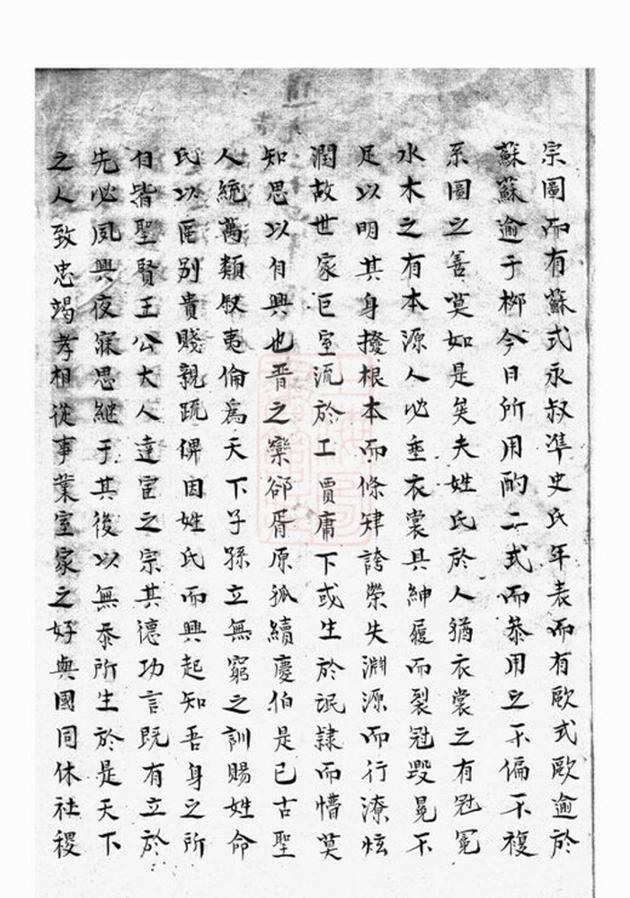 宗圖而有蘇式永叔準史氏年表而有歐式歐逾於
蘇蘇逾于栁今日所用酌二式而叅用之不偏不複
系圖之善莫如是矣夫姓氏於人猶衣裳之有冠冕
水木之有本源人必垂衣裳具紳履而裂冠毀冕不
足以明其身撥根本而條肄誇榮失淵源而行潦炫
潤故世家巨室流於工賈庸下或生於氓隸而懵莫
知思以自興也晋之欒郤胥原狐續慶伯是已古聖
人統萬類叙夷倫爲天下子孫立無窮之訓賜姓命
氏以區别貴賤親疏俾因姓氏而興起知吾身之所
自皆聖賢王公大人達官之宗其德功言既有立於
先必夙興夜寐思継于其後以無忝所生於是天下
之人致忠竭孝相從事業室家之好與國同休社稷